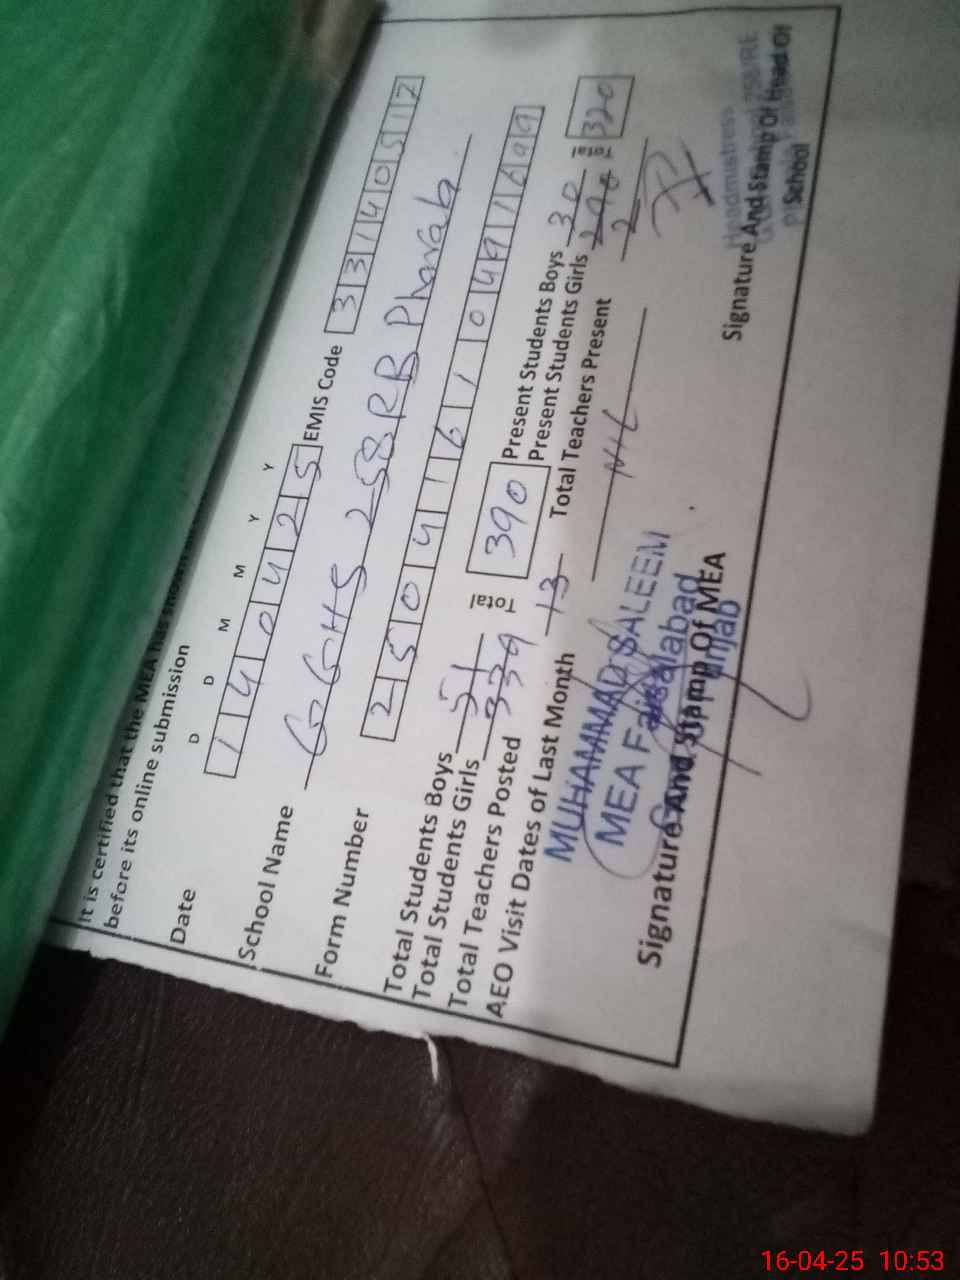 It is certified that the MEA has shown
before its online submission
D D M M Y Y
Date 1 4 0 4 2 5 EMIS Code 3 3 1 4 0 5 1 2
School Name GGHS 258 RB Pharala
Form Number 2 5 0 4 1 6 1 1 0 4 9 1 6 9 9
Total Students Boys 51
Total Students Girls 339 Total 390
Present Students Boys 30
Present Students Girls 290 Total 320
Total Teachers Posted 13 Total Teachers Present 2
AEO Visit Dates of Last Month NIL
MUHAMMAD SALEEM
MEA Faisalabad
Punjab
Signature And Stamp Of MEA
Headmistress
Signature And Stamp Of Head Of
School
16-04-25 10:53